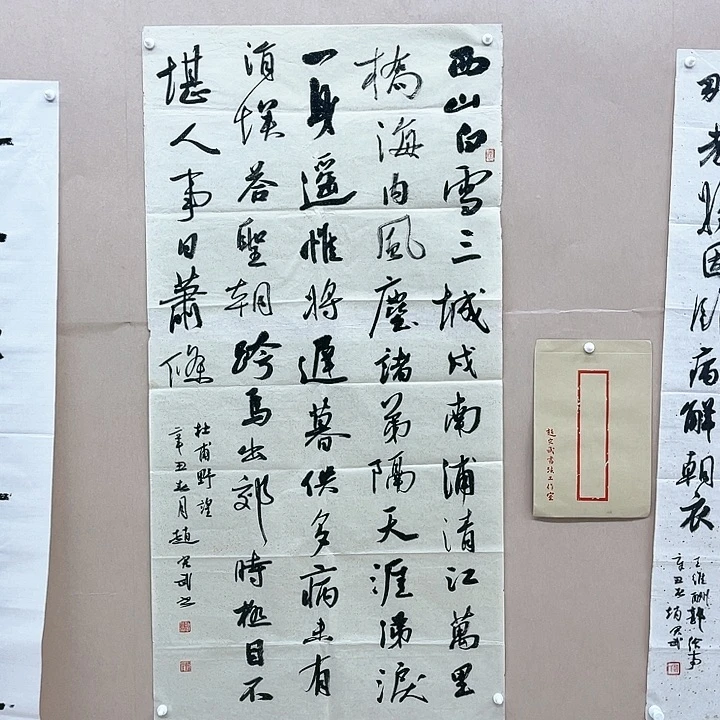 那老將因卧病解朝衣
王維酬郭給事
西山白雪三城戍南浦清江萬里
橋海内風塵諸弟隔天涯涕淚
一身遥惟將遲暮供多病未有
涓埃答聖朝跨馬出郊時極目不
堪人事日蕭條
杜甫野望
辛丑月趙武書
趙武書法工作室